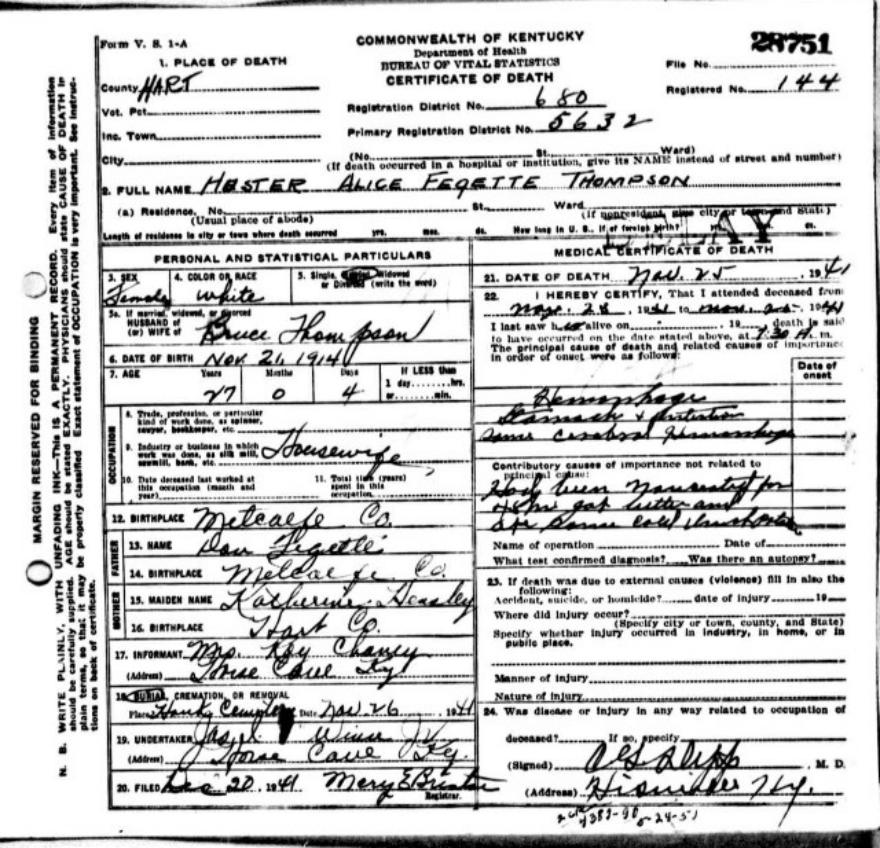 Form V. S. 1-A
COMMONWEALTH OF KENTUCKY
Department of Health
BUREAU OF VITAL STATISTICS
CERTIFICATE OF DEATH
28751
File No.
Registered No. 144
1. PLACE OF DEATH
County HART
Vot. Pct.
Inc. Town
City
Registration District No. 680
Primary Registration District No. 5632
(No. St. Ward)
(If death occurred in a hospital or institution, give its NAME instead of street and number)
2. FULL NAME HESTER ALICE FEGETTE THOMPSON
(a) Residence. No. St. Ward
(Usual place of abode) (If nonresident, give city or town and State)
Length of residence in city or town where death occurred yrs. mos. ds. How long in U. S., if of foreign birth? yrs. mos. ds.
DELAY
PERSONAL AND STATISTICAL PARTICULARS
3. SEX Female
4. COLOR OR RACE White
5. Single, Married, Widowed or Divorced (write the word)
5a. If married, widowed, or divorced
HUSBAND of
(or) WIFE of Bruce Thompson
6. DATE OF BIRTH Nov. 21, 1914
7. AGE Years Months Days If LESS than
27 0 4 1 day hrs.
or min.
OCCUPATION
8. Trade, profession, or particular
kind of work done, as spinner,
sawyer, bookkeeper, etc.
9. Industry or business in which
work was done, as silk mill,
sawmill, bank, etc.
Housewife
10. Date deceased last worked at
this occupation (month and
year)
11. Total time (years)
spent in this
occupation.
12. BIRTHPLACE Metcalfe Co.
FATHER
13. NAME Dan Fegette
14. BIRTHPLACE Metcalfe Co.
MOTHER
15. MAIDEN NAME Katherine Heasley
16. BIRTHPLACE Hart Co.
17. INFORMANT Mrs. Kay Chaney
(Address) Horse Cave Ky.
18. BURIAL, CREMATION, OR REMOVAL
Place Cemetery Date Nov 26 1941
19. UNDERTAKER Winn
(Address) Horse Cave Ky.
20. FILED Dec 20, 1941 Mary E
Registrar.
MEDICAL CERTIFICATE OF DEATH
21. DATE OF DEATH Nov. 25, 1941
22. I HEREBY CERTIFY, That I attended deceased from
1941 to 1941
I last saw h alive on , 19 death is said
to have occurred on the date stated above, at 7:30 A. m.
The principal cause of death and related causes of importance
in order of onset were as follows:
Date of
onset
Hemorrhage
Stomach &
Some cerebral hemorrhage
Contributory causes of importance not related to
principal cause:
Had been for
got better and
some cold
Name of operation Date of
What test confirmed diagnosis? Was there an autopsy?
23. If death was due to external causes (violence) fill in also the
following:
Accident, suicide, or homicide? date of injury 19
Where did injury occur?
(Specify city or town, county, and State)
Specify whether injury occurred in industry, in home, or in
public place.
Manner of injury
Nature of injury
24. Was disease or injury in any way related to occupation of
deceased? If so, specify
(Signed) M. D.
(Address) Ky.
MARGIN RESERVED FOR BINDING
N. B. WRITE PLAINLY, WITH UNFADING INK—This IS A PERMANENT RECORD. Every item of information
should be carefully supplied. AGE should be stated EXACTLY. PHYSICIANS should state CAUSE OF DEATH in
plain terms, so that it may be properly classified. Exact statement of OCCUPATION is very important. See instruc-
tions on back of certificate.